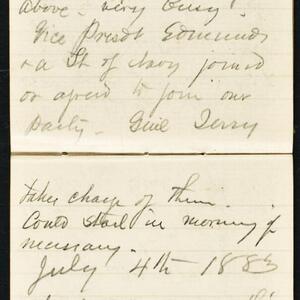 above - very busy!
Vice Presdt Edmunds
& a Lt of Navy joined
or agreed to join our
Party - Genl Terry
takes charge of them.
Could start in morning if
necessary.
July 4th 1883